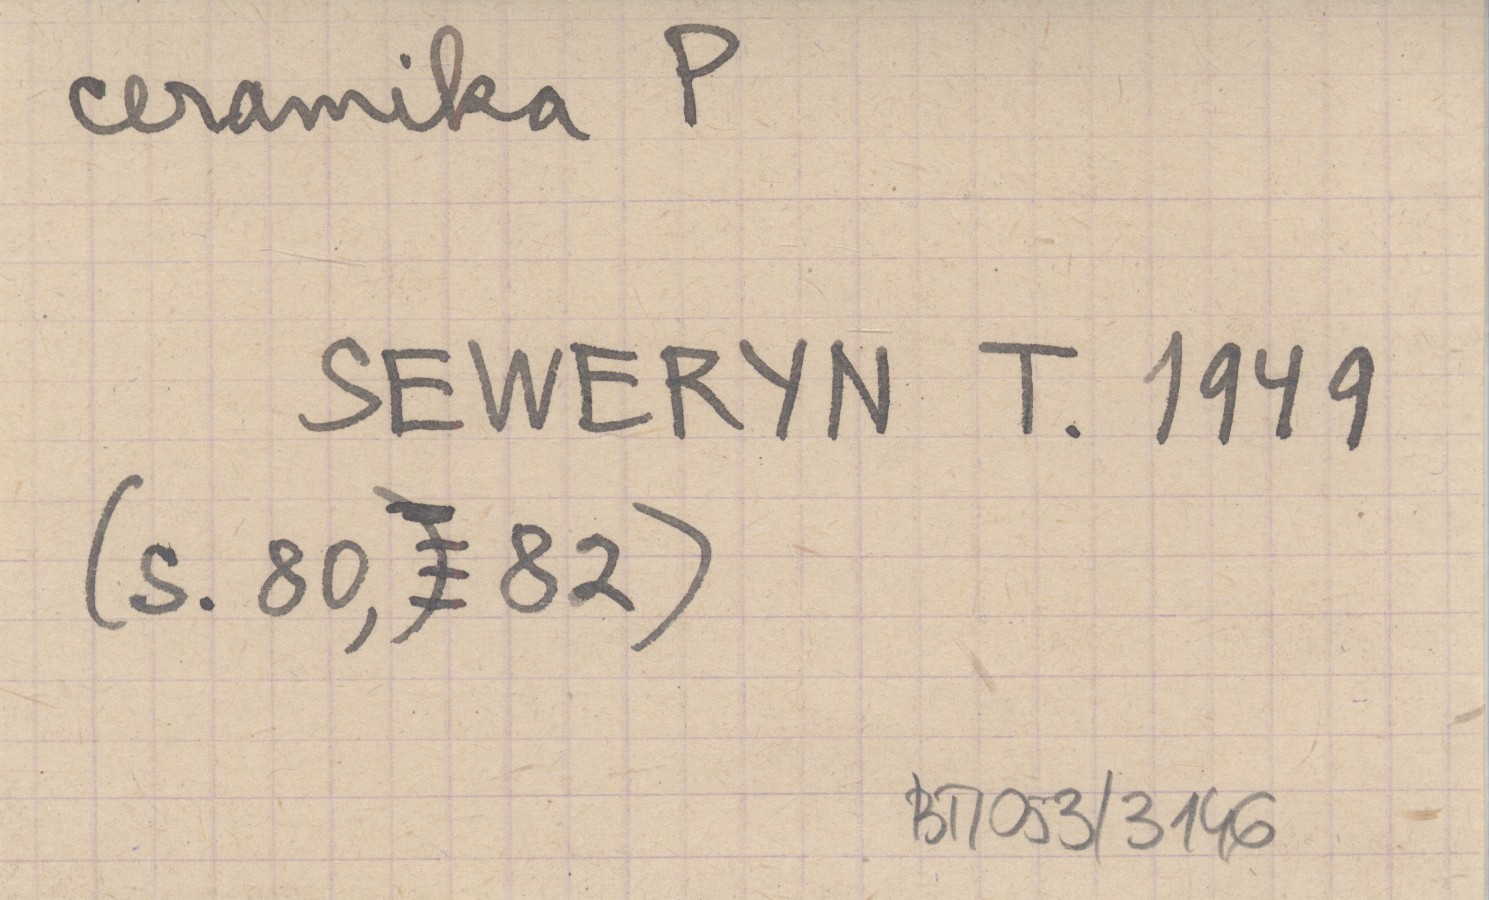 ceramika P
SEWERYN T. 1949
(s. 80, 82)
ВП053/3146